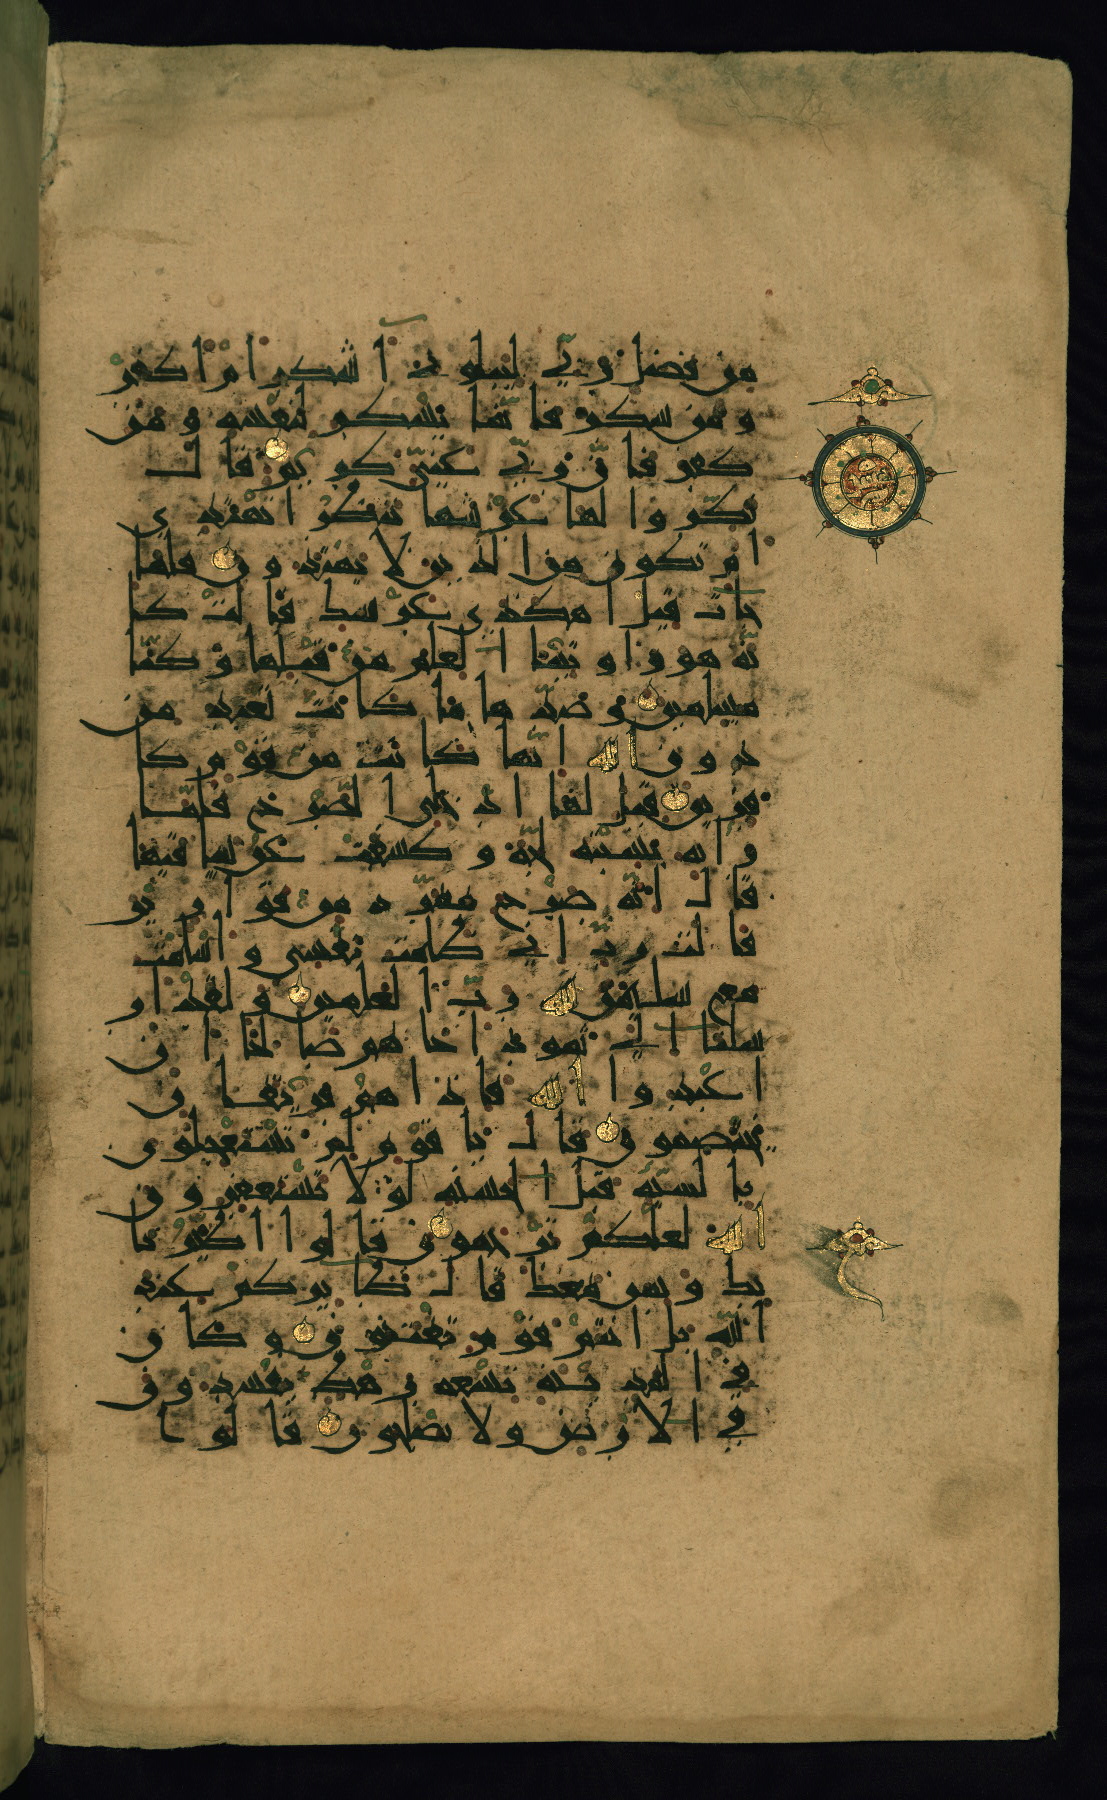 من فضل ربي ليبلوني ءاشكر ام اكفر
ومن شكر فانما يشكر لنفسه ومن
كفر فان ربي غني كريم قال
نكروا لها عرشها ننظر اتهتدي
ام تكون من الذين لا يهتدون فلما
جات قيل اهكذي عرشك قالت كا
نه هو واوتينا العلم من قبلها وكنا
مسلمين وصدها ما كانت تعبد من
دون الله انها كانت من قوم كا
فرين قيل لها ادخلي الصرح فلما
راته حسبته لجة وكشفت عن ساقيها
قال انه صرح ممرد من قوارير
قالت رب اني ظلمت نفسي واسلمت
مع سليمن لله رب العلمين ولقد ار
سلنا الى ثمود اخاهم صالحا ان
اعبدوا الله فاذا هم فريقان
يختصمون قال يا قوم لم تستعجلون
بالسيئة قبل الحسنة لولا تستغفرون
الله لعلكم ترحمون قالوا اطيرنا
بك وبمن معك قال طايركم عند
الله بل انتم قوم تفتنون وكان
في المدينة تسعة رهط يفسدون
في الارض ولا يصلحون قالوا